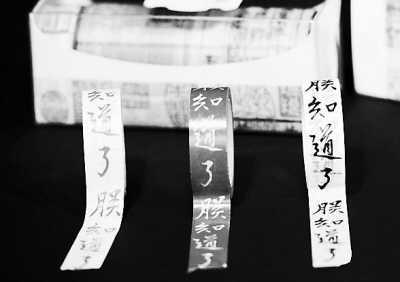 知道了
朕知道了
朕知道了
朕知道了
朕知道了
朕知道了